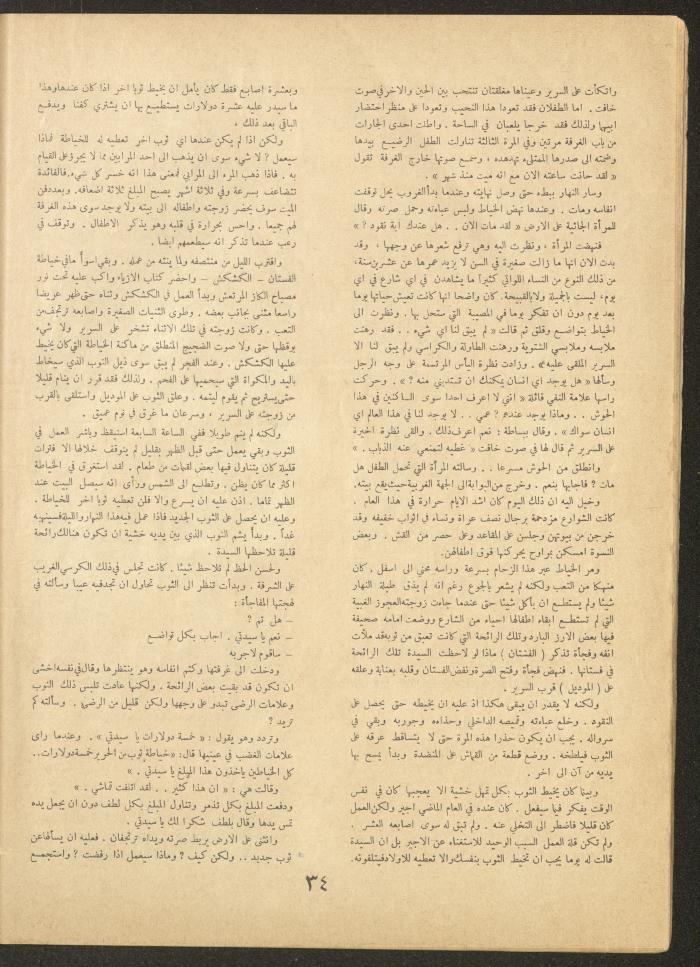 واتكأت على السرير وعيناها مغلقتان تنتحب بين الحين والاخر في صوت
خافت . اما الطفلان فقد تعودا هذا النحيب وتعودا على منظر احتضار
ابيهما ولذلك فقد خرجا يلعبان في الساحة . واطلت احدى الجارات
من باب الغرفة مرتين وفي المرة الثالثة تناولت الطفل الرضيع بيدها
وضمته الى صدرها الممتلىء تهدهده ، وسمع صوتها خارج الغرفة تقول
« لقد حانت ساعته الان مع انه ميت منذ شهر » .
وسار النهار ببطء حتى وصل نهايته وعندما بدأ الغروب يحل توقفت
انفاسه ومات . وعندها نهض الخياط ولبس عباءته وحمل صرته وقال
للمرأة الجاثية على الارض « لقد مات الان . . هل عندك اية نقود ? »
فنهضت المرأة ، ونظرت اليه وهي ترفع شعرها عن وجهها ، وقد
بدت الان انها ما زالت صغيرة في السن لا يزيد عمرها عن عشرين سنة ،
من ذلك النوع من النساء اللواتي كثيراً ما يشاهدن في اي شارع في اي
يوم ، ليست بالجميلة ولا بالقبيحة . كان واضحا انها كانت تعيش حياتها يوما
بعد يوم دون ان تفكر يوما في المصيبة التي ستحل بها . ونظرت الى
الخياط بتواضع وقلق ثم قالت « لم يبق لنا اي شيء . . فقد رهنت
ملابسه وملابسي الشتوية ورهنت الطاولة والكراسي ولم يبق لنا الا
السرير الملقى عليه » . وزادت نظرة اليأس المرتسمة على وجه الرجل
وسألها « هل يوجد اي انسان يمكنك ان تستديني منه ? » . وحركت
راسها علامة النفي قائلة « انني لا اعرف احدا سوى الساكنين في هذا
الحوش . . وماذا يوجد عندهم ? عمي . . لا يوجد لنا في هذا العالم اي
انسان سواك » . وقال ببساطة : نعم اعرف ذلك . والقى نظرة الحيرة
على السرير ثم قال لها في صوت خافت « غطيه لتمنعي عنه الذباب . »
وانطلق من الحوش مسرعا . . وسالته المرأة التي تحمل الطفل هل
مات ? فاجابها بنعم . وخرج من البوابة الى الجهة الغربية حيث يقع بيته .
وخيل اليه ان ذلك اليوم كان اشد الايام حرارة في هذا العام .
كانت الشوارع مزدحمة برجال نصف عراة ونساء في اثواب خفيفه وقد
خرجن من بيوتهن وجلسن على المقاعد وعلى حصر من القش . وبعض
النسوة امسكن بمراوح يحركنها فوق اطفالهن .
وهر الخياط عبر هذا الزحام بسرعة وراسه محني الى اسفل . كان
منهكا من التعب ولكنه لم يشعر بالجوع رغم انه لم يذق طيلة النهار
شيئا ولم يستطع ان يأكل شيئا حتى عندما جاءت زوجته العجوز الغبية
التي لم تستطع ابقاء اطفالها احياء من الشارع ووضعت امامه صحيفة
فيها بعض الارز البارد وتلك الرائحة التي كانت تعبق من ثوبه قد ملأت
انفه وفجأة تذكر ( الفستان ) ماذا لو لاحظت السيدة تلك الرائحة
في فستانها . فنهض فجأة وفتح الصرة ونفض الفستان وقلبه بعناية وعلقه
على ( الموديل ) قرب السرير .
ولكنه لا يقدر ان يبقى هكذا اذ عليه ان يخيطه حتى يحصل على
النقود . وخلع عباءته وقميصه الداخلي وحذاءه وجوربه وبقي في
سرواله . يجب ان يكون حذرا هذه المرة حتى لا يتساقط عرقه على
الثوب فيلطخه . ووضع قطعة من القماش على المنضدة وبدأ يمسح بها
يديه من آن الى اخر .
وبينما كان يخيط الثوب بكل تمهل خشية الا يعجبها كان في نفس
الوقت يفكر فيما سيفعل . كان عنده في العام الماضي اجير ولكن العمل
كان قليلا فاضطر الى التخلي عنه . ولم تبق له سوى اصابعه العشر .
ولم تكن قلة العمل السبب الوحيد للاستغناء عن الاجير بل ان السيدة
قالت له يوما يجب ان تخيط الثوب بنفسك والا تعطيه للاولاد فيتلفوته .
وبعشرة اصابع فقط كان يأمل ان يخيط ثوبا اخر اذا كان عندها وهذا
ما سيدر عليه عشرة دولارات يستطيع بها ان يشتري كفنا ويدفع
الباقي بعد ذلك .
ولكن اذا لم يكن عندها اي ثوب اخر تعطيه له للخياطة فماذا
سيعمل ? لا شيء سوى ان يذهب الى احد المرابين مما لا يجرؤ على القيام
به . فاذا ذهب الى المرابي فمعنى هذا انه خسر كل شيء . فالفائدة
تتضاعف بسرعة وفي ثلاثة اشهر يصبح المبلغ ثلاثة اضعافه . وبعد دفن
الميت سوف يحضر زوجته واطفاله الى بيته ولا يوجد سوى هذه الغرفة
لهم جميعا . واحس بحرارة في قلبه وهو يذكر الاطفال . وتوقف في
رعب عندما تذكر انه سيطعمهم ايضا .
واقترب الليل من منتصفه ولما ينته من عمله . وبقي اسوأ ما في خياطة
الفستان – الكشكش – واحضر كتاب الازياء واكب عليه تحت نور
مصباح الكاز المرتعش وبدأ العمل في الكشكش وثناه حتى ظهر عريضا
واسعا مثنى بجانب بعضه . وطوى الثنيات الصغيرة واصابعه ترتجف من
التعب . وكانت زوجته في تلك الاثناء تشخر على السرير ولا شيء
يوقظها حتى ولا صوت الضجيج المنطلق من ماكنة الخياطة التي كان يخيط
عليها الكشكش . وعند الفجر لم يبق سوى ذيل الثوب الذي سيخاط
باليد والمكواة التي سيحميها على الفحم . ولذلك فقد قرر ان ينام قليلا
حتى يستريح ثم يقوم ليتمه . وعلق الثوب على الموديل واستلقى بالقرب
من زوجته على السرير ، وسرعان ما غرق في نوم عميق .
ولكنه لم ينم طويلا ففي الساعة السابعة استيقظ وباشر العمل في
الثوب وبقي يعمل حتى قبل الظهر بقليل لم يتوقف خلالها الا فترات
قليلة كان يتناول فيها بعض لقيمات من طعام . لقد استغرق في الخياطة
اكثر مما كان يظن . وتطلع الى الشمس ورأى انه سيصل البيت عند
الظهر تماما . اذن عليه ان يسرع والا فلن تعطيه ثوبا اخر للخياطة .
وعليه ان يحصل على الثوب الجديد فاذا عمل فيه هذا النهار والليلة فسينهيه
غداً . وبدأ يشم الثوب الذي بين يديه خشية ان تكون هنالك رائحة
قليلة تلاحظها السيدة .
ولحسن الحظ لم تلاحظ شيئا . كانت تجلس في ذلك الكرسي الغريب
على الشرفة . وبدأت تنظر الى الثوب تحاول ان تجد فيه عيبا وسألته في
لهجتها المفاجأة :
– هل تم ?
– نعم يا سيدتي . اجاب بكل تواضع
– ساقوم لاجربه
ودخلت الى غرفتها وكتم انفاسه وهو ينتظرها وقال في نفسه اخشى
ان تكون قد بقيت بعض الرائحة . ولكنها عادت تلبس ذلك الثوب
وعلامات الرضى تبدو على وجهها ولكن قليلا من الرضى . وسألته كم
تريد ?
وتردد وهو يقول : « خمسة دولارات يا سيدتي » . وعندما راى
علامات الغضب في عينيها قال : « خياطة ثوب من الحرير خمسة دولارات..
كل الخياطين ياخذون هذا المبلغ يا سيدتي . »
وقالت هي : « ان هذا كثير . . لقد اتلفت قماشي . »
ودفعت المبلغ بكل تذمر وتناول المبلغ بكل لطف دون ان يجعل يده
تمس يدها وقال بلطف شكرا لك يا سيدتي .
وانثنى على الارض يربط صرته ويداه ترتجفان . فعليه ان يسألها عن
ثوب جديد .. ولكن كيف ? وماذا سيعمل اذا رفضت ? واستجمع
٣٤